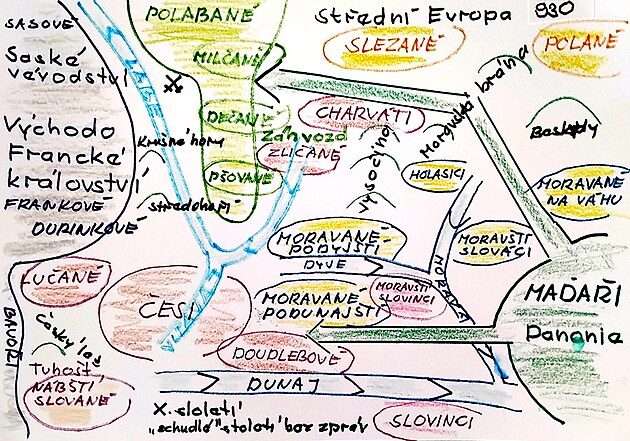 SASOVÉ
POLABANÉ
Střední Evropa 930
Saské
vévodství
MILČANÉ
SLEZANÉ
POLANÉ
LABE
Moravská brána
DEČANÉ
CHARVÁTI
Východo
Francké
království
FRANKOVÉ
DURINKOVÉ
Krušné hory
Záhvozd
ZLIČANÉ
Vysočina
Beskydy
PŠOVANÉ
HOLASICI
MORAVANÉ
NA VÁHU
středohoří
MORAVANÉ
PODYJŠTÍ
MORAVŠTÍ
SLOVÁCI
DYJE
MORAVA
LUČANÉ
ČEŠI
MORAVANÉ
PODUNAJŠTÍ
MORAVŠTÍ
SLOVINCI
MAĎAŘI
Panonia
BAVOŘI
Český les
DOUDLEBOVÉ
Tuhošť
NÁBŠTÍ
SLOVANÉ
DUNAJ
X. století
„schudlé" století bez zpráv
SLOVINCI